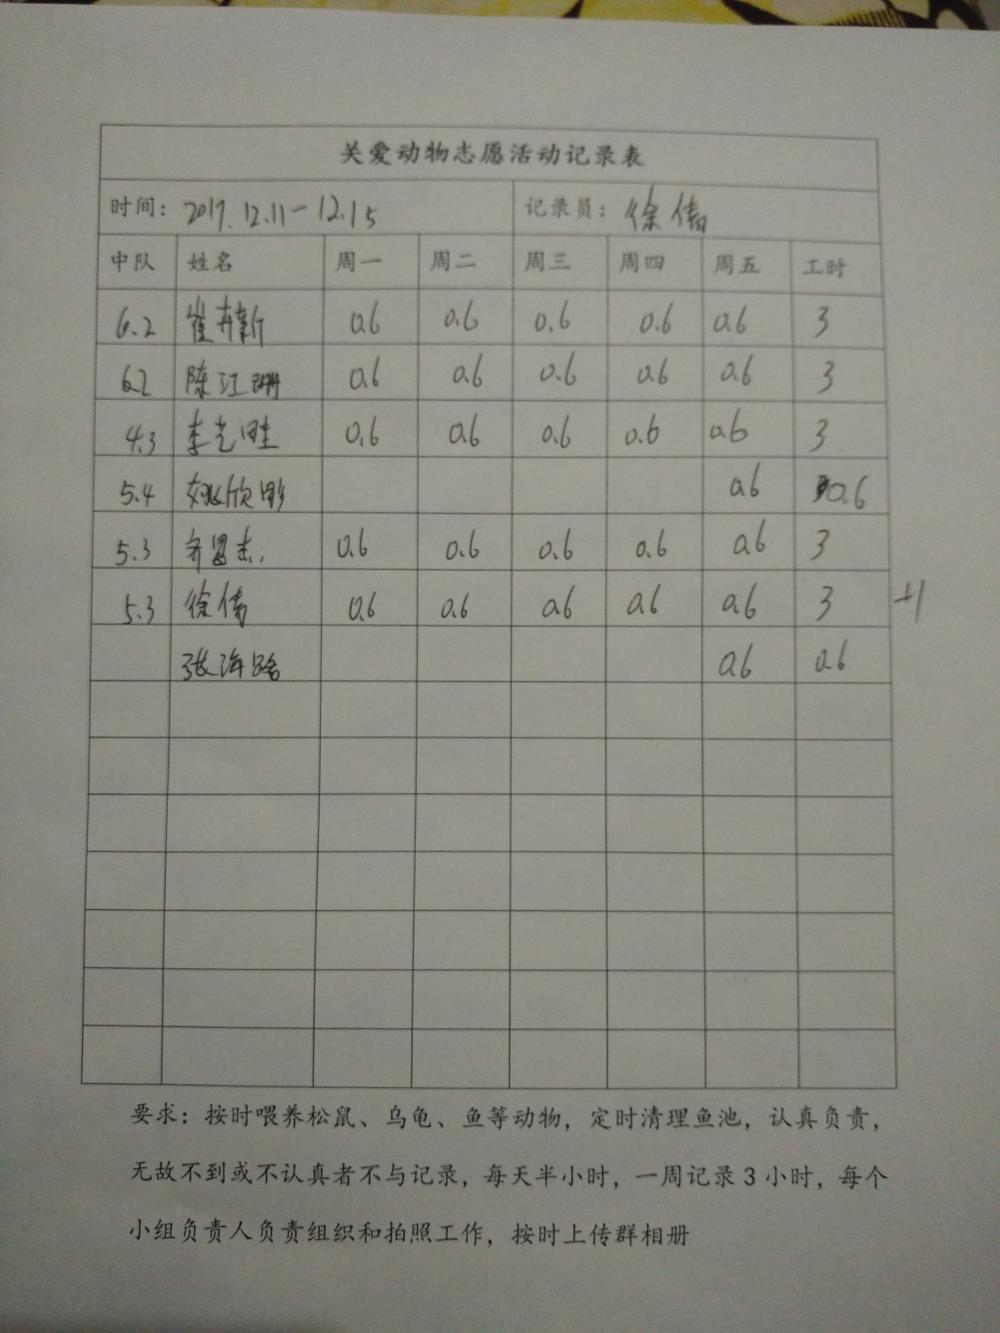 关爱动物志愿活动记录表
时间：2017.12.11-12.15 记录员：徐倩
中队 姓名 周一 周二 周三 周四 周五 工时
6.2 崔冉新 0.6 0.6 0.6 0.6 0.6 3
6.2 陈江珊 0.6 0.6 0.6 0.6 0.6 3
4.3 李艺 0.6 0.6 0.6 0.6 0.6 3
5.4 姚欣彤 0.6 0.6
5.3 0.6 0.6 0.6 0.6 0.6 3
5.3 徐倩 0.6 0.6 0.6 0.6 0.6 3 +1
张海路 0.6 0.6
要求：按时喂养松鼠、乌龟、鱼等动物，定时清理鱼池，认真负责，
无故不到或不认真者不与记录，每天半小时，一周记录3小时，每个
小组负责人负责组织和拍照工作，按时上传群相册